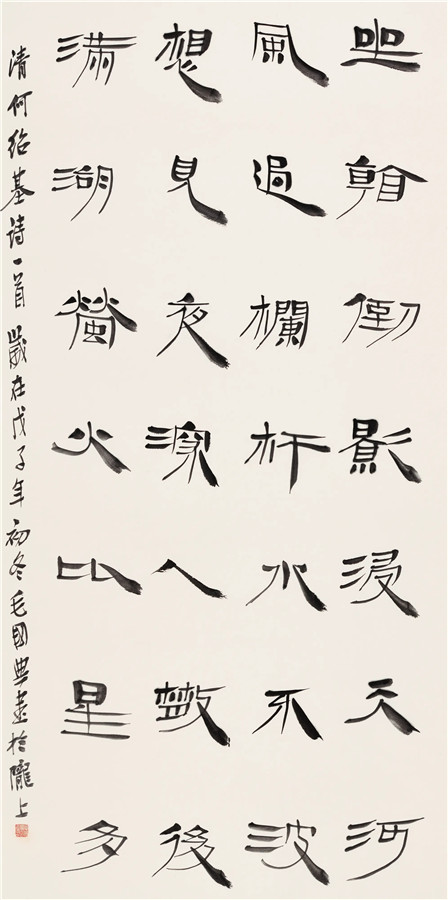 坐看倒影浸天河
風過欄杆水不波
想見夜深人散後
滿湖螢火比星多
清何紹基詩一首 歲在戊子年初冬毛國典書於隴上